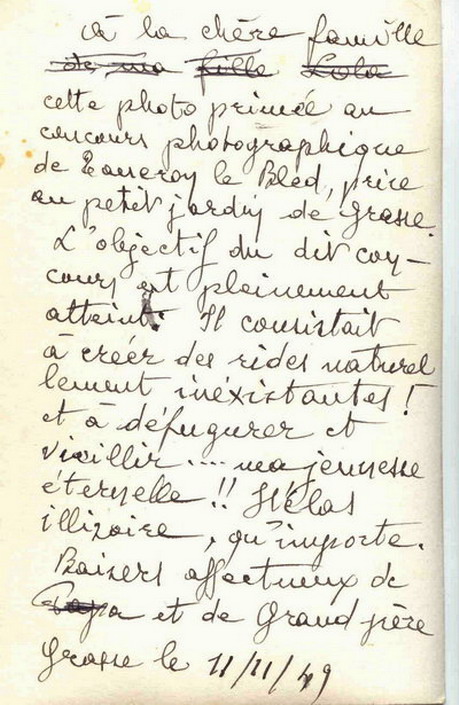 à la chère famille
de ma fille Lola
cette photo primée au
concours photographique
de le Bled, prise
au petit jardin de Grasse.
L'objectif du dit con-
cours est pleinement
atteint. Il consistait
à créer des rides naturel
lement inéxistantes !
et à défugurer et
vieillir .... ma jeunesse
éternelle !! Hélas
illizoire, qu'importe.
Baisers affectueux de
Papa et de Grand père
Grasse le 11/11/49